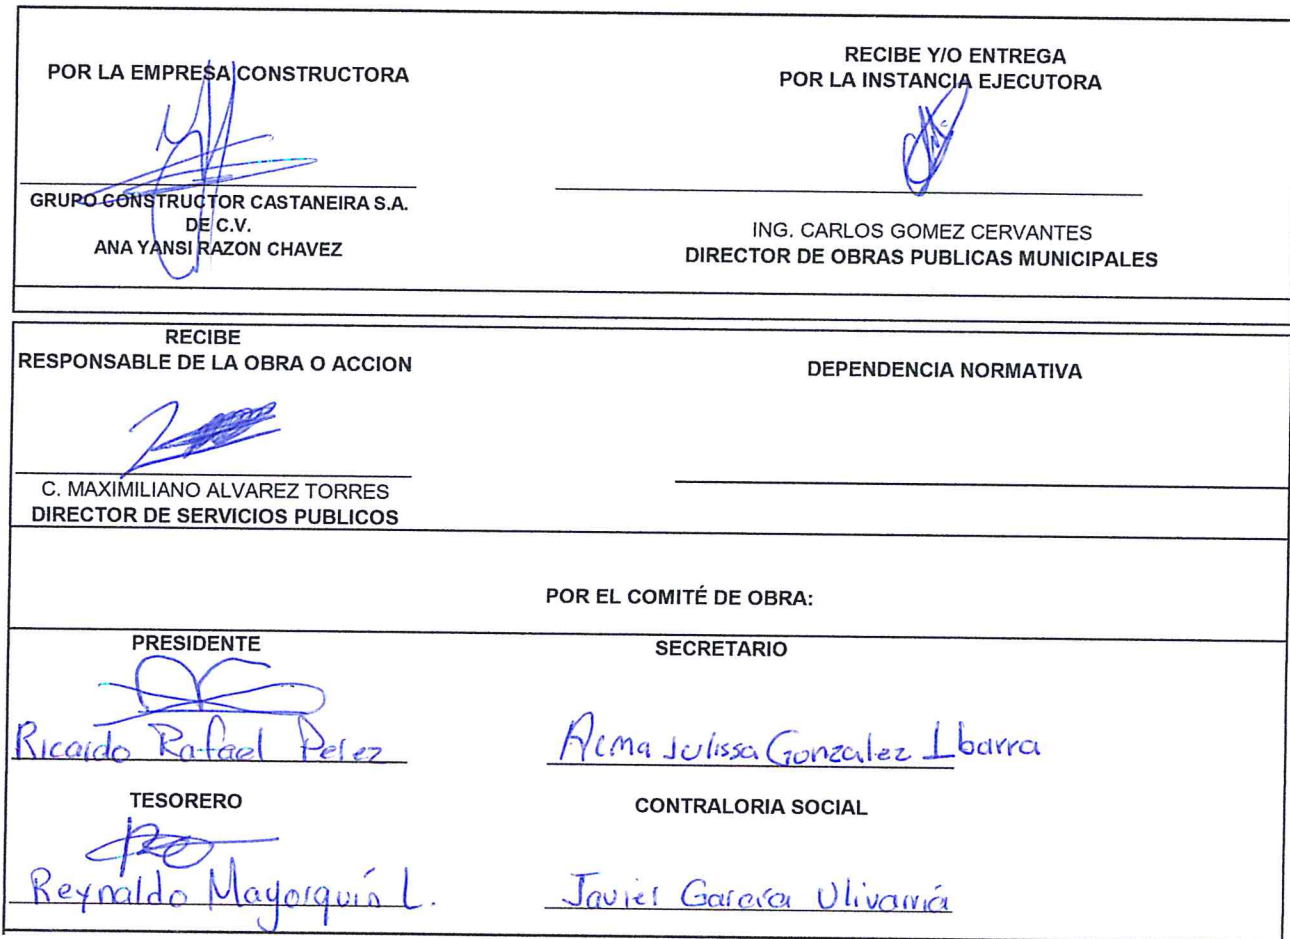 POR LA EMPRESA CONSTRUCTORA
GRUPO CONSTRUCTOR CASTANEIRA S.A.
DE C.V.
ANA YANSI RAZON CHAVEZ
RECIBE Y/O ENTREGA
POR LA INSTANCIA EJECUTORA
ING. CARLOS GOMEZ CERVANTES
DIRECTOR DE OBRAS PUBLICAS MUNICIPALES
RECIBE
RESPONSABLE DE LA OBRA O ACCION
C. MAXIMILIANO ALVAREZ TORRES
DIRECTOR DE SERVICIOS PUBLICOS
DEPENDENCIA NORMATIVA
POR EL COMITÉ DE OBRA:
PRESIDENTE
Ricardo Rafael Perez
SECRETARIO
Julissa Gonzalez Ibarra
TESORERO
Reynaldo Mayorquín L.
CONTRALORIA SOCIAL
Javier García